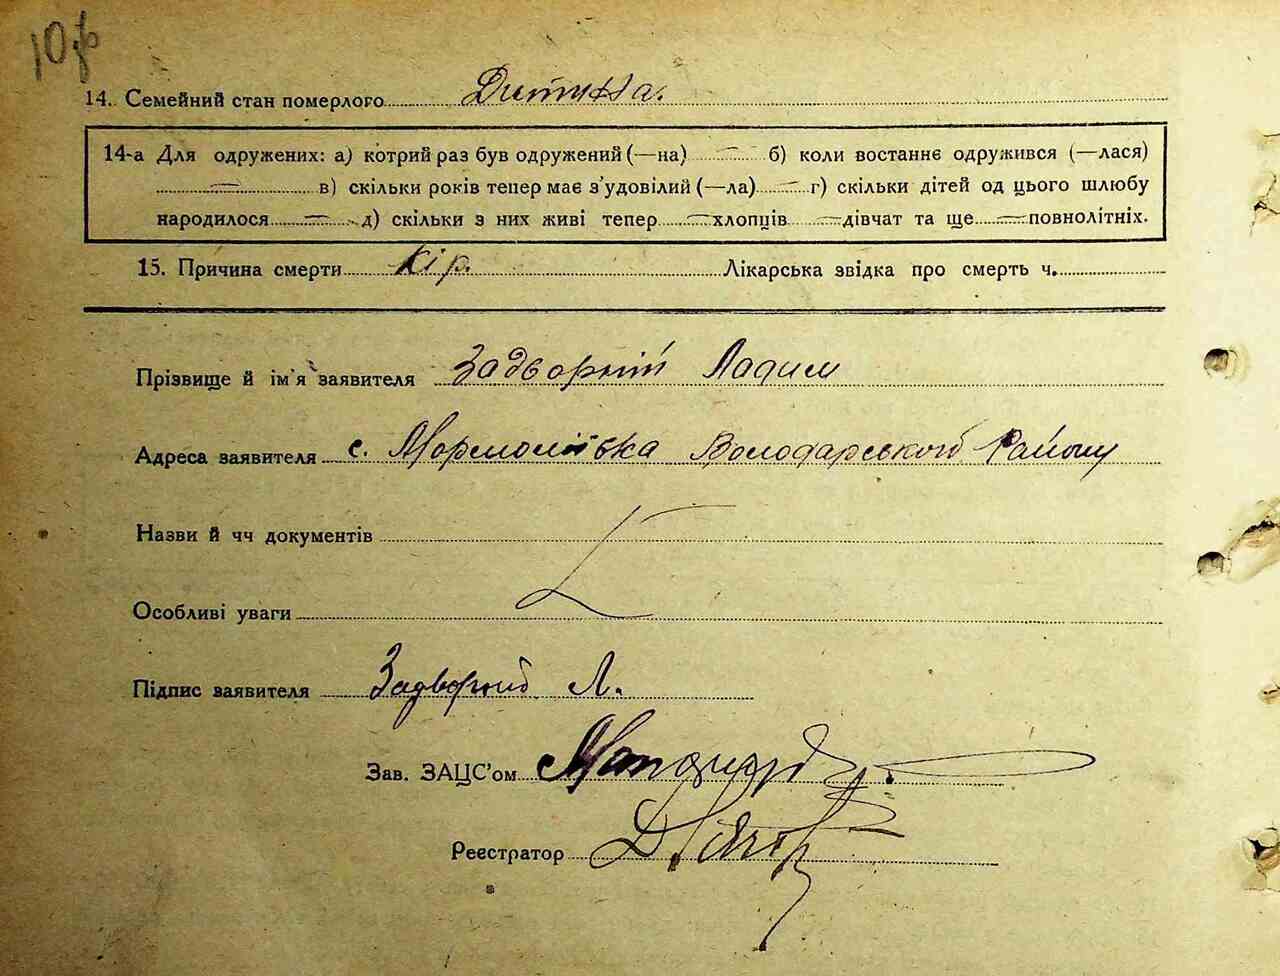 14. Семейний стан померлого Дитина.
14-а Для одружених: а) котрий раз був одружений (—на) — б) коли востаннє одружився (—лася)
— в) скільки років тепер має з'удовілий (—ла) — г) скільки дітей од цього шлюбу
народилося — д) скільки з них живі тепер — хлопців — дівчат та ще — повнолітніх.
15. Причина смерти кір. Лікарська звідка про смерть ч.
Прізвище й ім'я заявителя Задворний
Адреса заявителя с. Володарського Району
Назви й чч документів
Особливі уваги
Підпис заявителя Задворний Л.
Зав. ЗАЦС'ом
Реєстратор